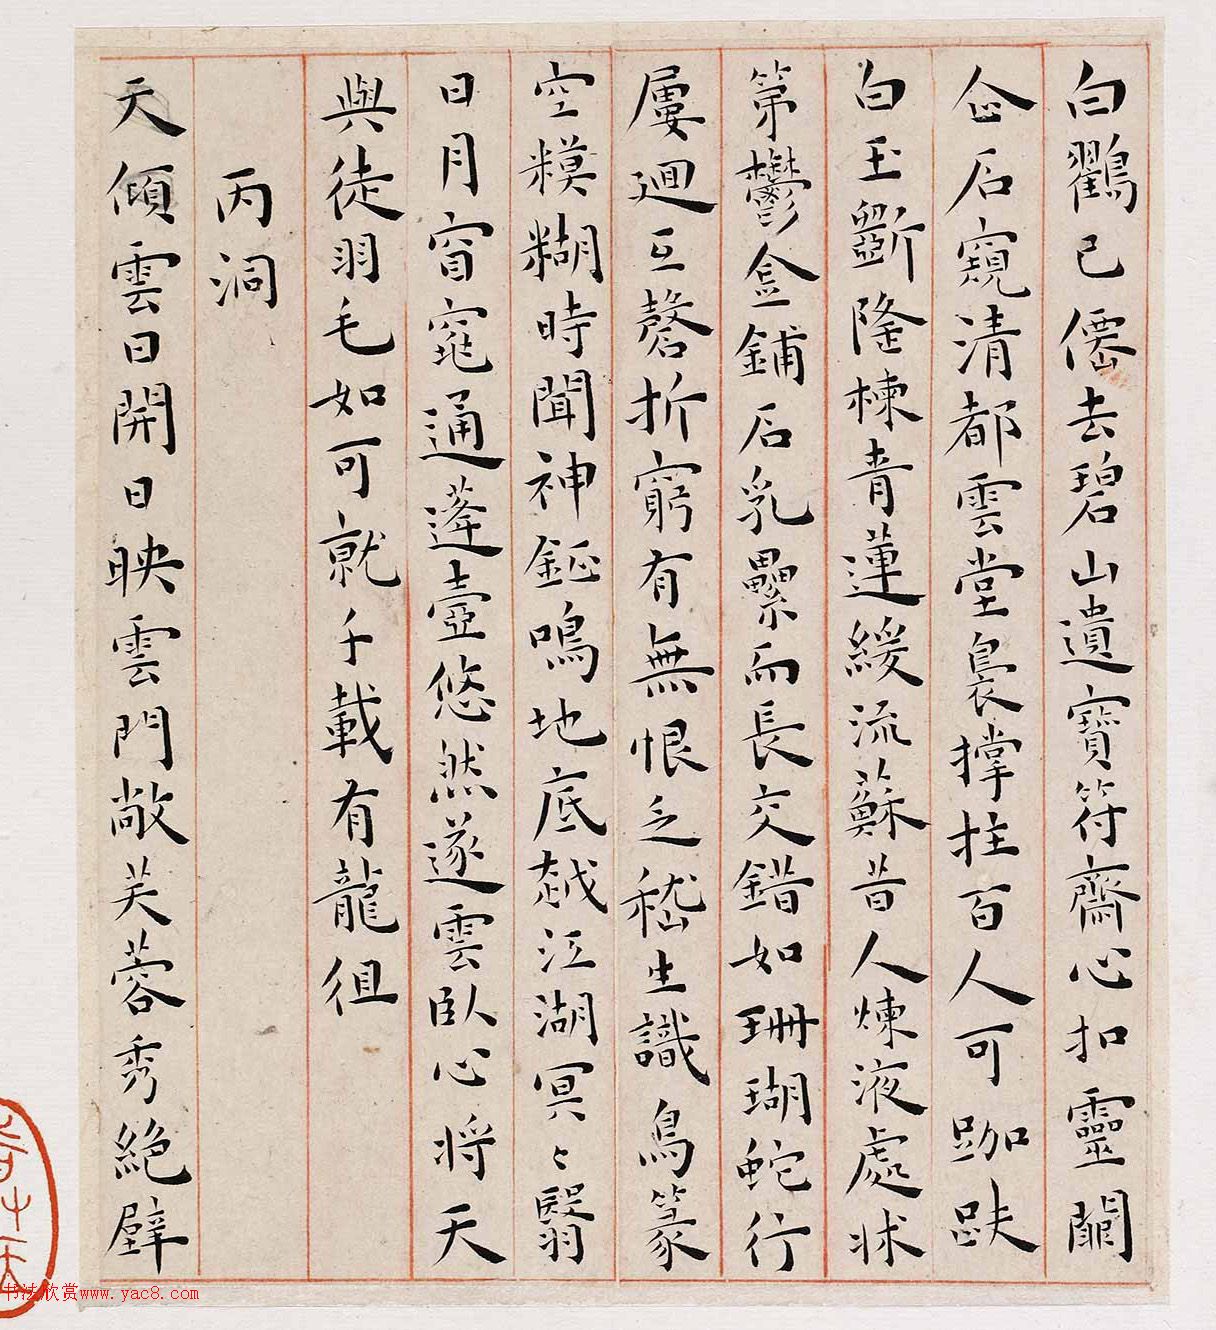 白鸛已僊去碧山遺寶符齋心扣靈關
仚石窺清都雲堂裊撐拄百人可跏趺
白玉斲隆棟青蓮綴流蘇昔人煉液處牀
第鬱盒鋪石乳纍而長交錯如珊瑚蛇行
屢迴互磬折窮有無恨乏嵇生識鳥篆
空糢糊時聞神鉦鳴地底越江湖冥冥翳
日月窅窕通蓬壺悠然遂雲臥心將天
與徒羽毛如可就千載有龍徂
丙洞
天傾雲日開日映雲門敞芙蓉秀絕壁
书法欣赏www.yac8.com